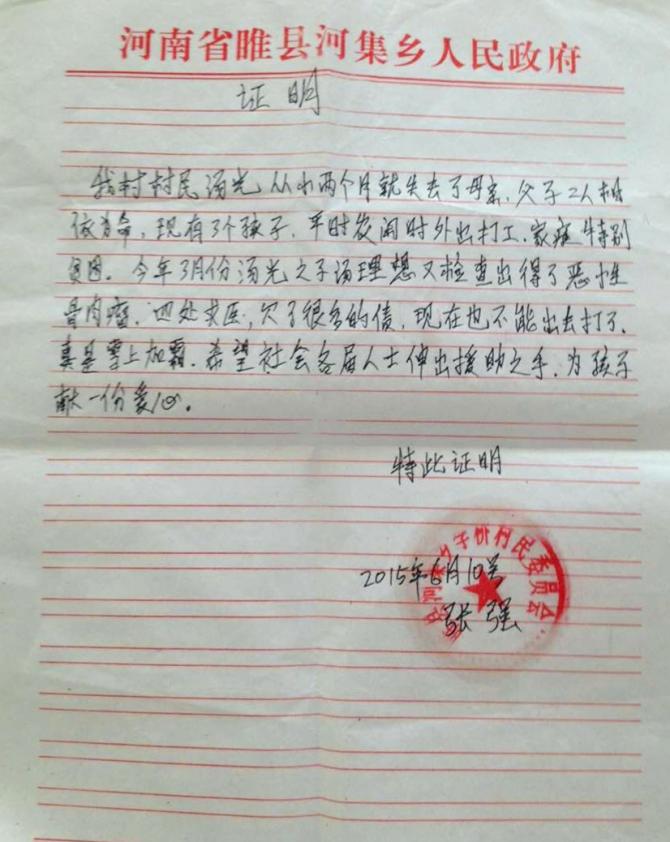 河南省睢县河集乡人民政府
证明
我村村民汤光从小两个月就失去了母亲、父子2人相
依为命,现有3个孩子.平时农闲时外出打工.家庭特别
贫困。今年3月份汤光之子汤理想又检查出得了恶性
骨肉瘤.四处求医,欠了很多的债,现在也不能出去打工,
真是雪上加霜.希望社会各届人士伸出援助之手.为孩子
献一份爱心。
特此证明
村民委员会
2015年6月10号
张强